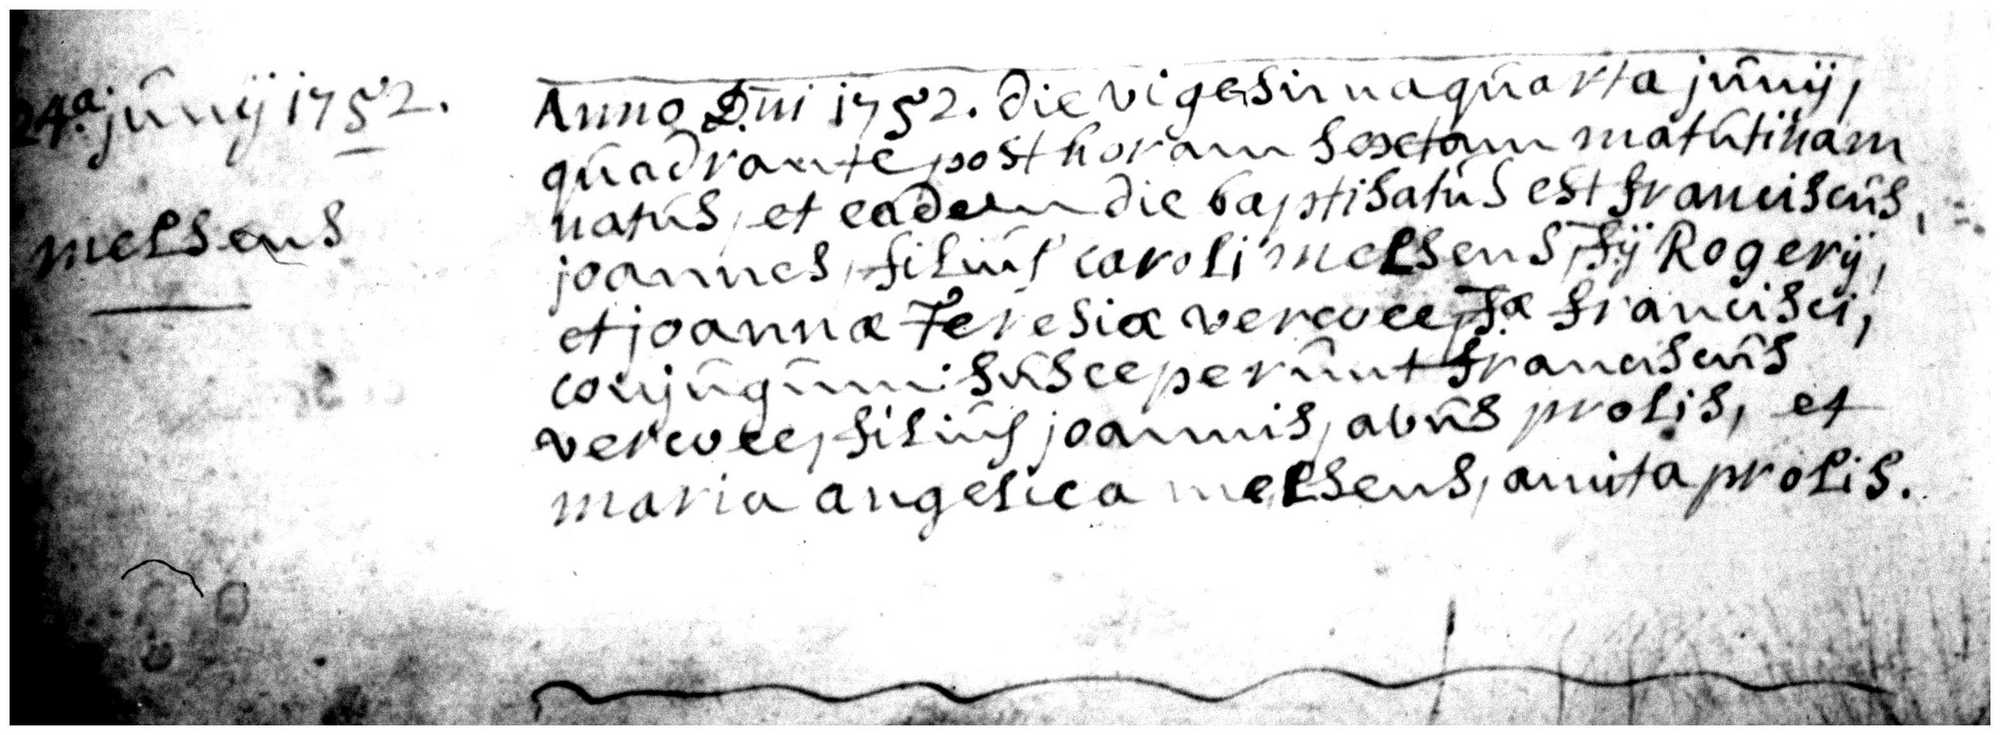 24.a junij 1752.
melsens
Anno Dni 1752. die vigesima quarta junij,
quadrante post horam sextam matutinam
natus, et eadem die baptisatus est franciscus,
joannes, filius caroli melsens, fij Rogerij,
et joannæ Teresiæ vercoee, fæ francisci,
conjugum: susceperunt franciscus
vercoee, filius joannis, avus prolis, et
maria angelica melsens, amita prolis.